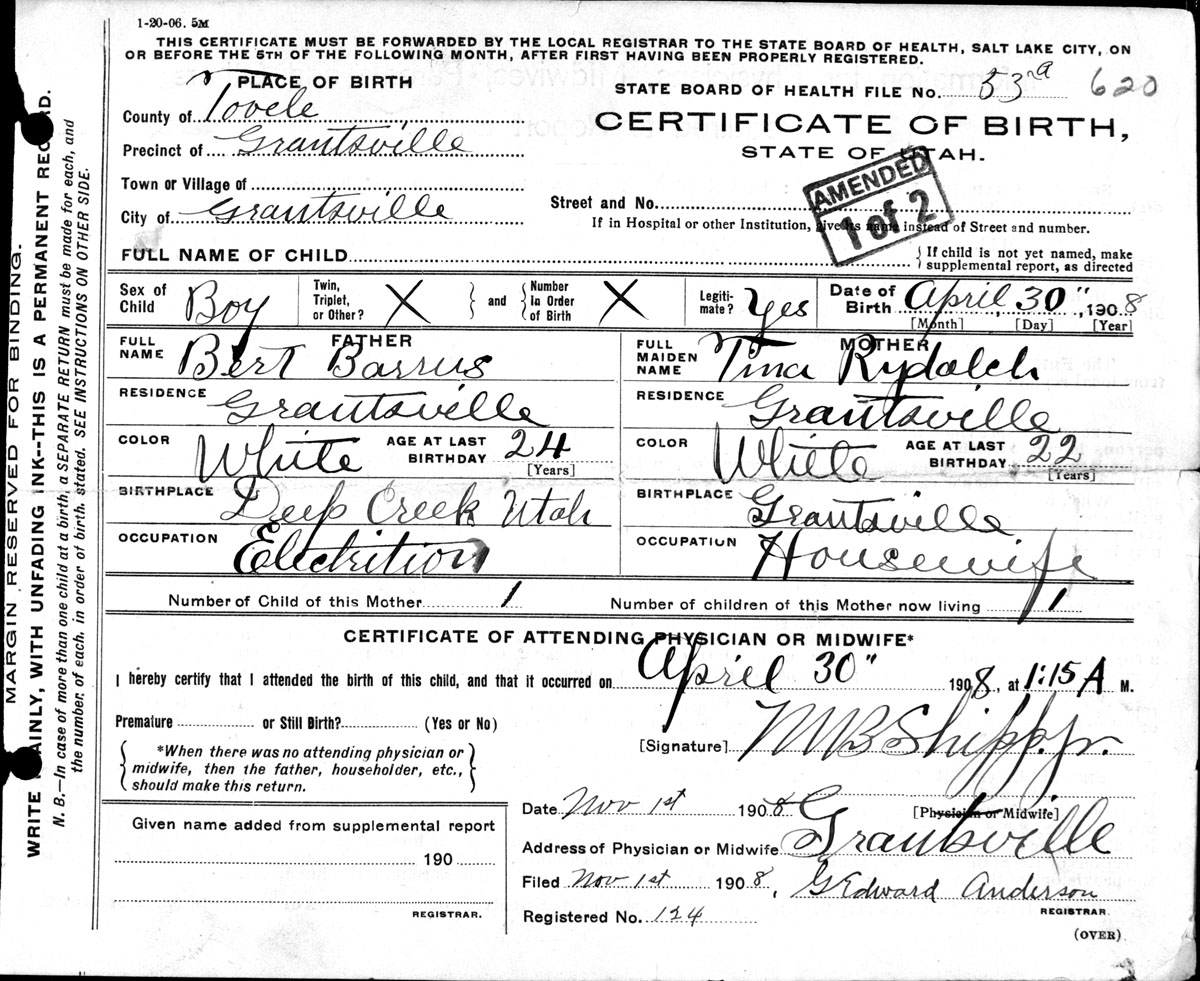 1-20-06. 5M
THIS CERTIFICATE MUST BE FORWARDED BY THE LOCAL REGISTRAR TO THE STATE BOARD OF HEALTH, SALT LAKE CITY, ON
OR BEFORE THE 5TH OF THE FOLLOWING MONTH, AFTER FIRST HAVING BEEN PROPERLY REGISTERED.
PLACE OF BIRTH
STATE BOARD OF HEALTH FILE No. 53 a 620
County of Tooele
CERTIFICATE OF BIRTH,
Precinct of Grantsville
STATE OF UTAH.
Town or Village of
AMENDED
1 of 2
City of Grantsville
Street and No.
If in Hospital or other Institution, give its name instead of Street and number.
FULL NAME OF CHILD { If child is not yet named, make
supplemental report, as directed
Sex of Child Boy
Twin, Triplet, or Other? X } and { Number in Order of Birth X
Legiti-mate? Yes
Date of Birth April 30", 1908
[Month] [Day] [Year]
FATHER
FULL NAME Bert Barrus
RESIDENCE Grantsville
COLOR White AGE AT LAST BIRTHDAY 24
[Years]
BIRTHPLACE Deep Creek Utah
OCCUPATION Electrition
MOTHER
FULL MAIDEN NAME Tina Rydalch
RESIDENCE Grantsville
COLOR White AGE AT LAST BIRTHDAY 22
[Years]
BIRTHPLACE Grantsville
OCCUPATION Housewife
Number of Child of this Mother 1 Number of children of this Mother now living 1
CERTIFICATE OF ATTENDING PHYSICIAN OR MIDWIFE*
I hereby certify that I attended the birth of this child, and that it occurred on April 30" 1908, at 1:15 A M.
Premature or Still Birth? (Yes or No)
{ *When there was no attending physician or
midwife, then the father, householder, etc.,
should make this return. }
[Signature] M B Shipp, Jr.
[Physician or Midwife]
Given name added from supplemental report
190
REGISTRAR.
Date Nov 1st 1908
Address of Physician or Midwife Grantsville
Filed Nov 1st 1908, G Edward Anderson
REGISTRAR
Registered No. 124
(OVER)
MARGIN RESERVED FOR BINDING.
WRITE PLAINLY, WITH UNFADING INK--THIS IS A PERMANENT RECORD.
N. B.—In case of more than one child at a birth, a SEPARATE RETURN must be made for each, and
the number of each, in order of birth, stated. SEE INSTRUCTIONS ON OTHER SIDE.